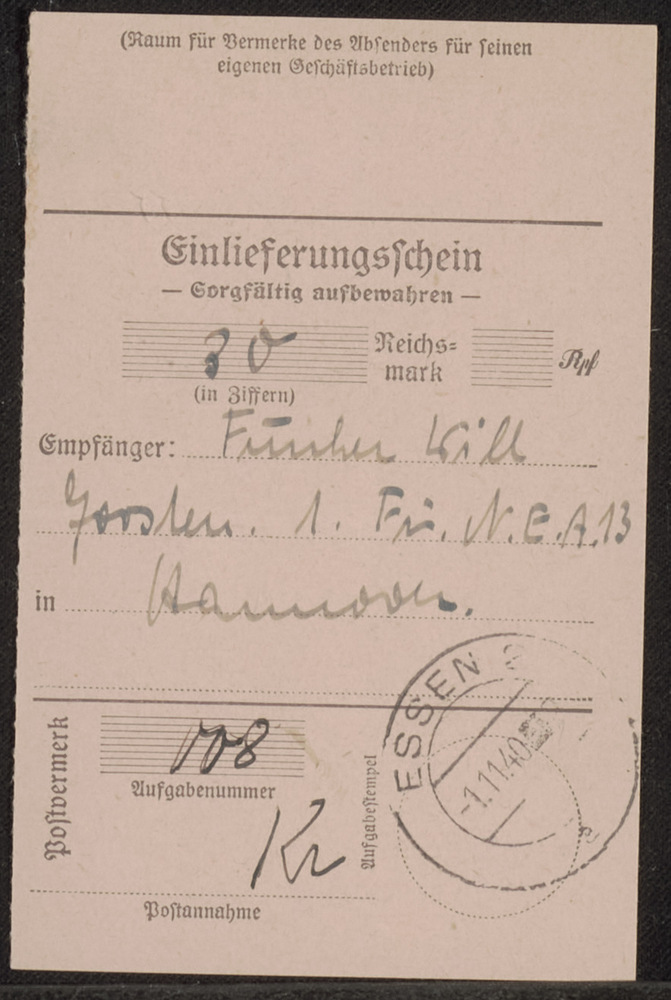 (Raum für Vermerke des Absenders für seinen
eigenen Geschäftsbetrieb)
Einlieferungsschein
— Sorgfältig aufbewahren —
30 Reichs=
mark Rpf
(in Ziffern)
Empfänger: Funker Will
1. Fu. N.E.A.13
in Hannover.
Postvermerk
108
Aufgabenummer
Kr
Postannahme
Aufgabestempel
ESSEN
-1.11.40